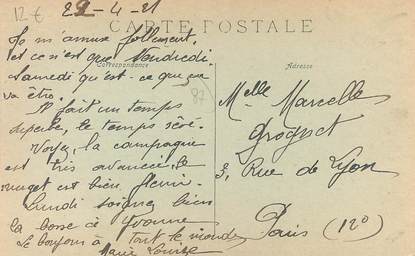 12€
22-4-21
CARTE POSTALE
Correspondance
Adresse
Je m'amuse follement,
et ce n'est que Vendredi
Samedi qu'est-ce que ça
va être.
Il fait un temps
superbe, le temps rêvé.
Voyez, la campagne
est très avancée, le
muguet est bien fleuri.
Lundi soignez bien
la bosse à Yvonne
Le bonjour à tout le monde
Marie Louise
87
Melle Marcelle
3, Rue de Lyon
Paris (12º)